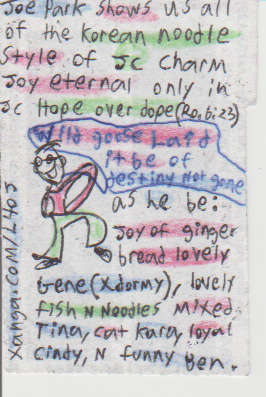 Joe Park shows us all
of the Korean noodle
Style of Jc Charm
Joy eternal only in
Jc Hope over dope (Ro, 6:23)
Wild goose Laid
it be of
destiny Not gone
as he be:
Joy of ginger
bread lovely
Gene (Xdormy), lovely
fish N Noodles Mixed
Tina, cat Kara, loyal
Cindy, N funny Ben.
xanga.com/L4OJ